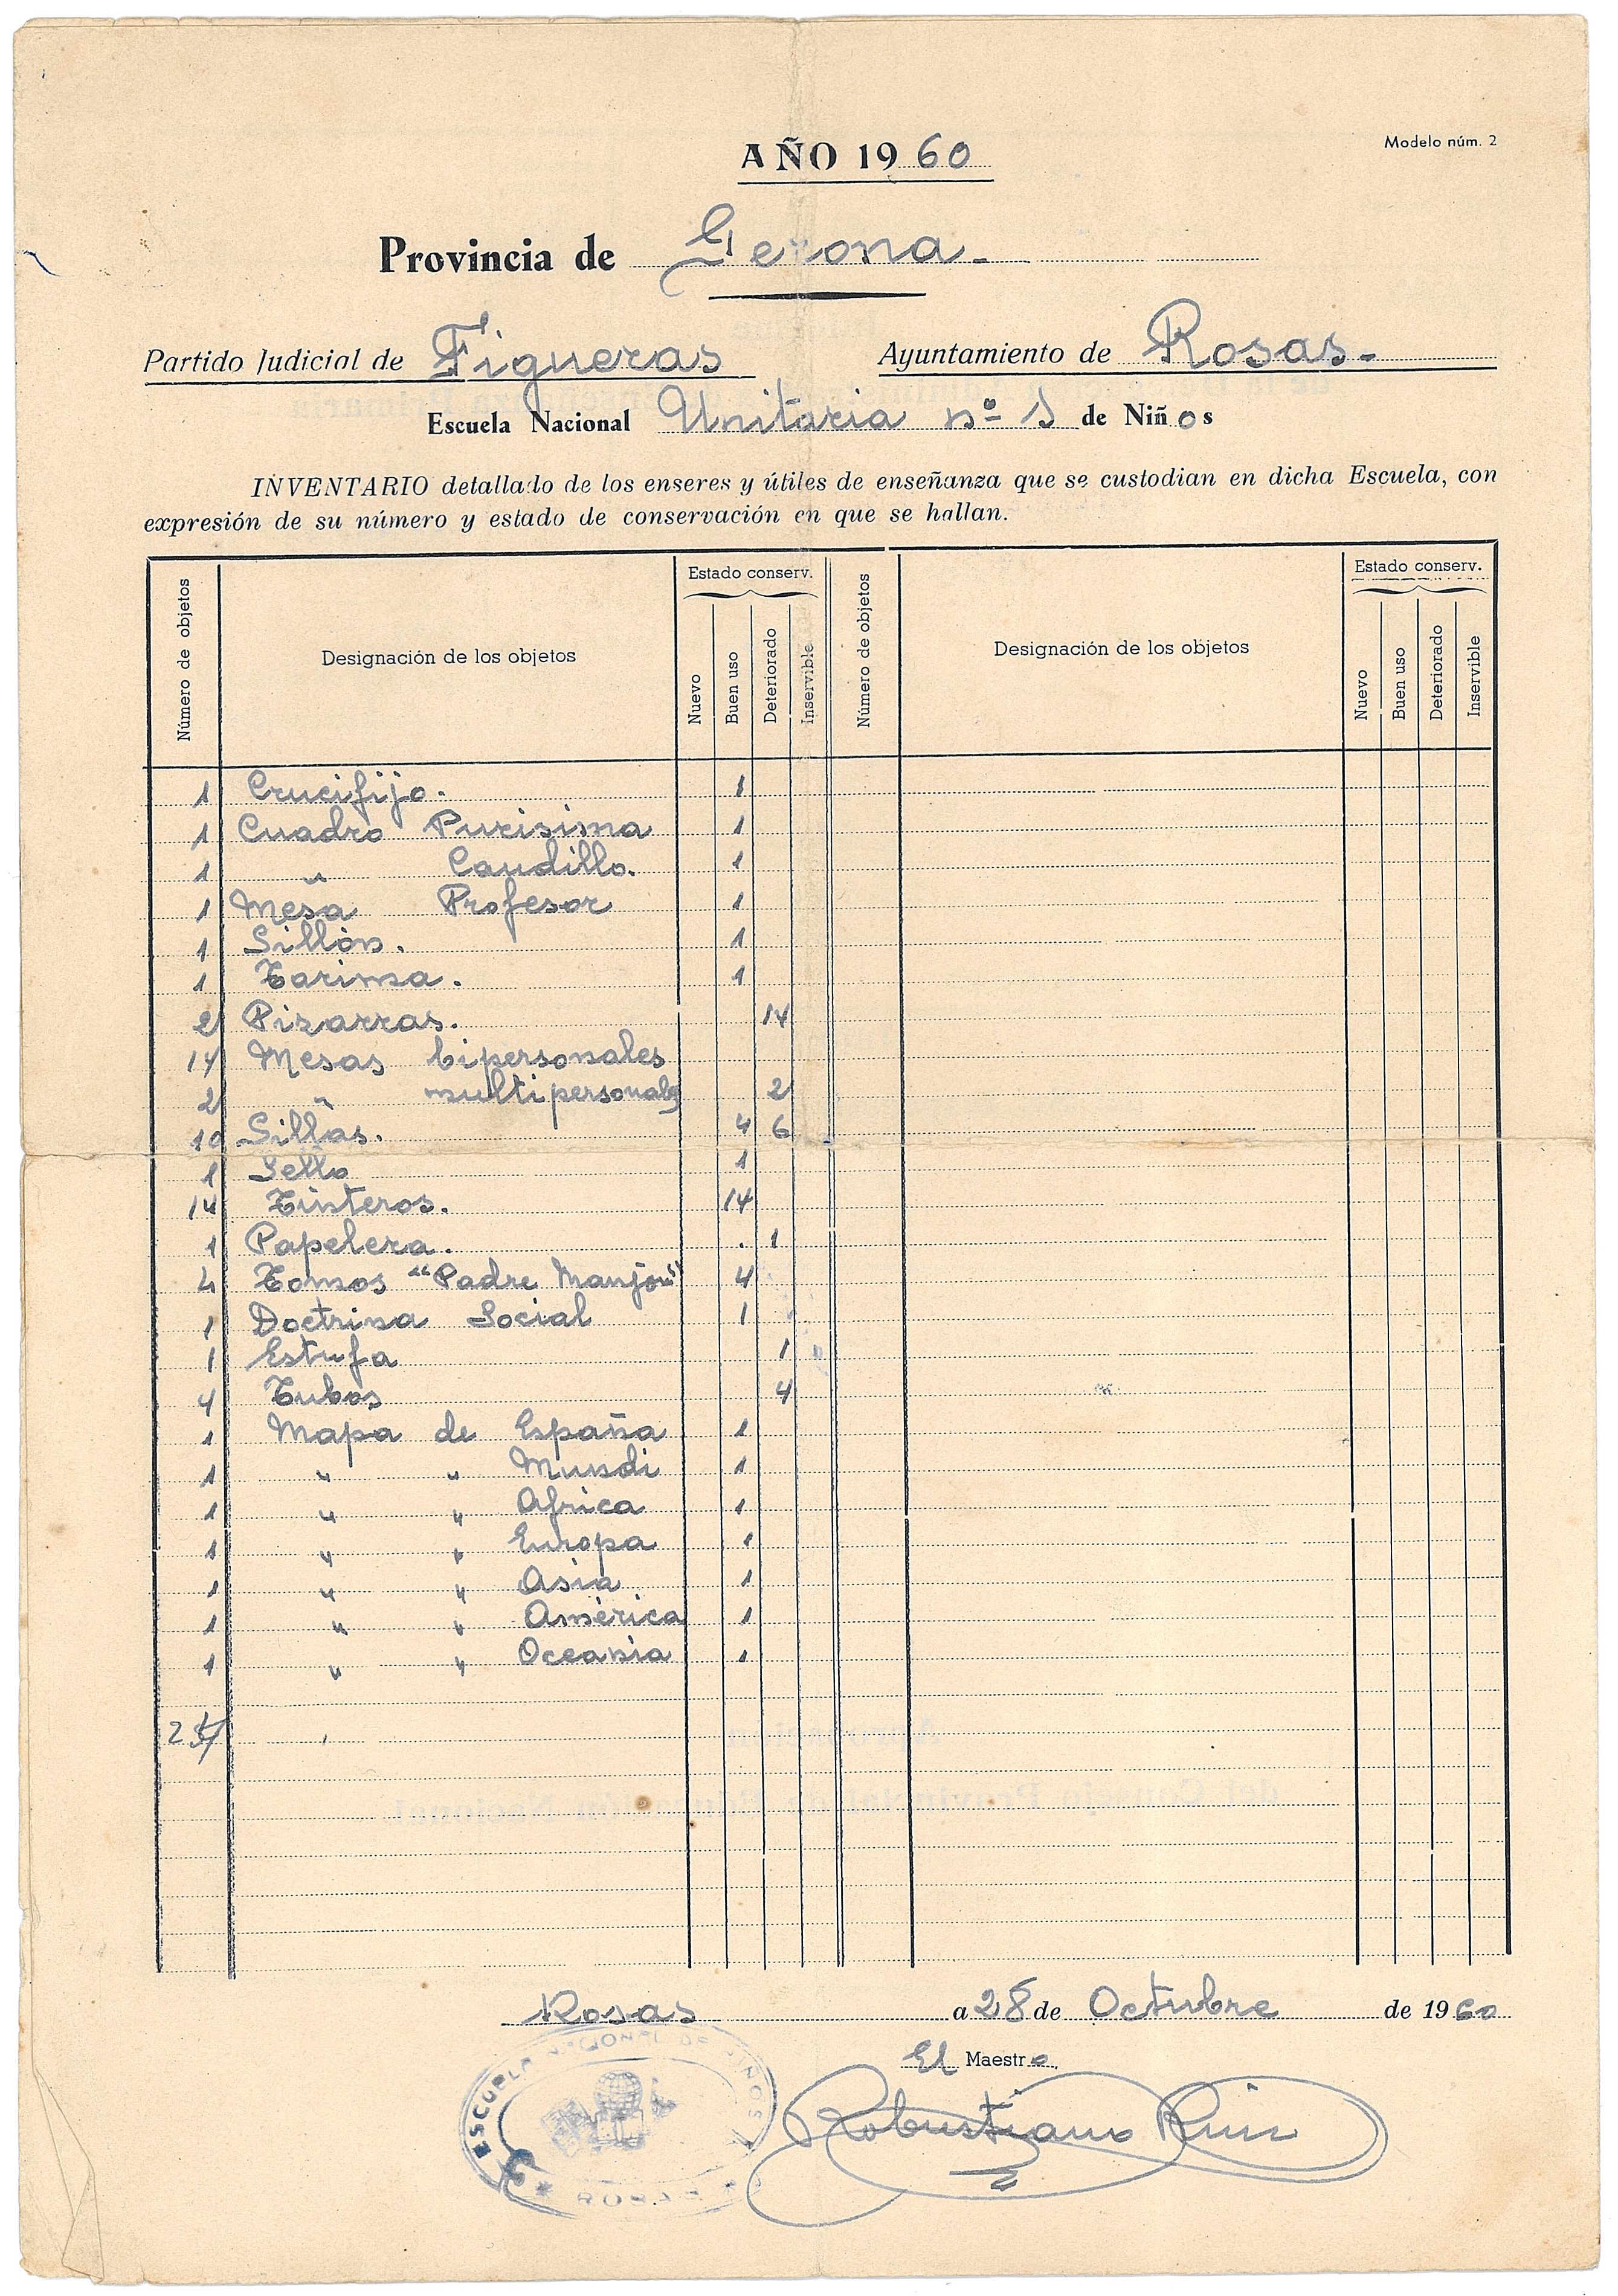 Modelo núm. 2
AÑO 1960
Provincia de Gerona.
Partido Judicial de Figueras Ayuntamiento de Rosas.
Escuela Nacional Unitaria nº 1 de Niños
INVENTARIO detallado de los enseres y útiles de enseñanza que se custodian en dicha Escuela, con
expresión de su número y estado de conservación en que se hallan.
Número de objetos Designación de los objetos Estado conserv. Nuevo Buen uso Deteriorado Inservible Número de objetos Designación de los objetos Estado conserv. Nuevo Buen uso Deteriorado Inservible
1 Crucifijo. 1
1 Cuadro Purisima 1
1 " Caudillo. 1
1 Mesa Profesor 1
1 Sillón. 1
1 Tarima. 1
2 Pizarras. 14
14 Mesas bipersonales
2 " multipersonales 2
10 Sillas. 4 6
1 Sello 1
14 Tinteros. 14
1 Papelera. 1
4 Tomos "Padre Manjón" 4
1 Doctrina Social 1
1 Estufa 1
4 Tubos 4
1 Mapa de España 1
1 " " Mundi 1
1 " " Africa 1
1 " " Europa 1
1 " " Asia 1
1 " " América 1
1 " " Oceania 1
Rosas a 28 de Octubre de 1960
El Maestro,
Robustiano Ruiz
ESCUELA NACIONAL DE NIÑOS
ROSAS